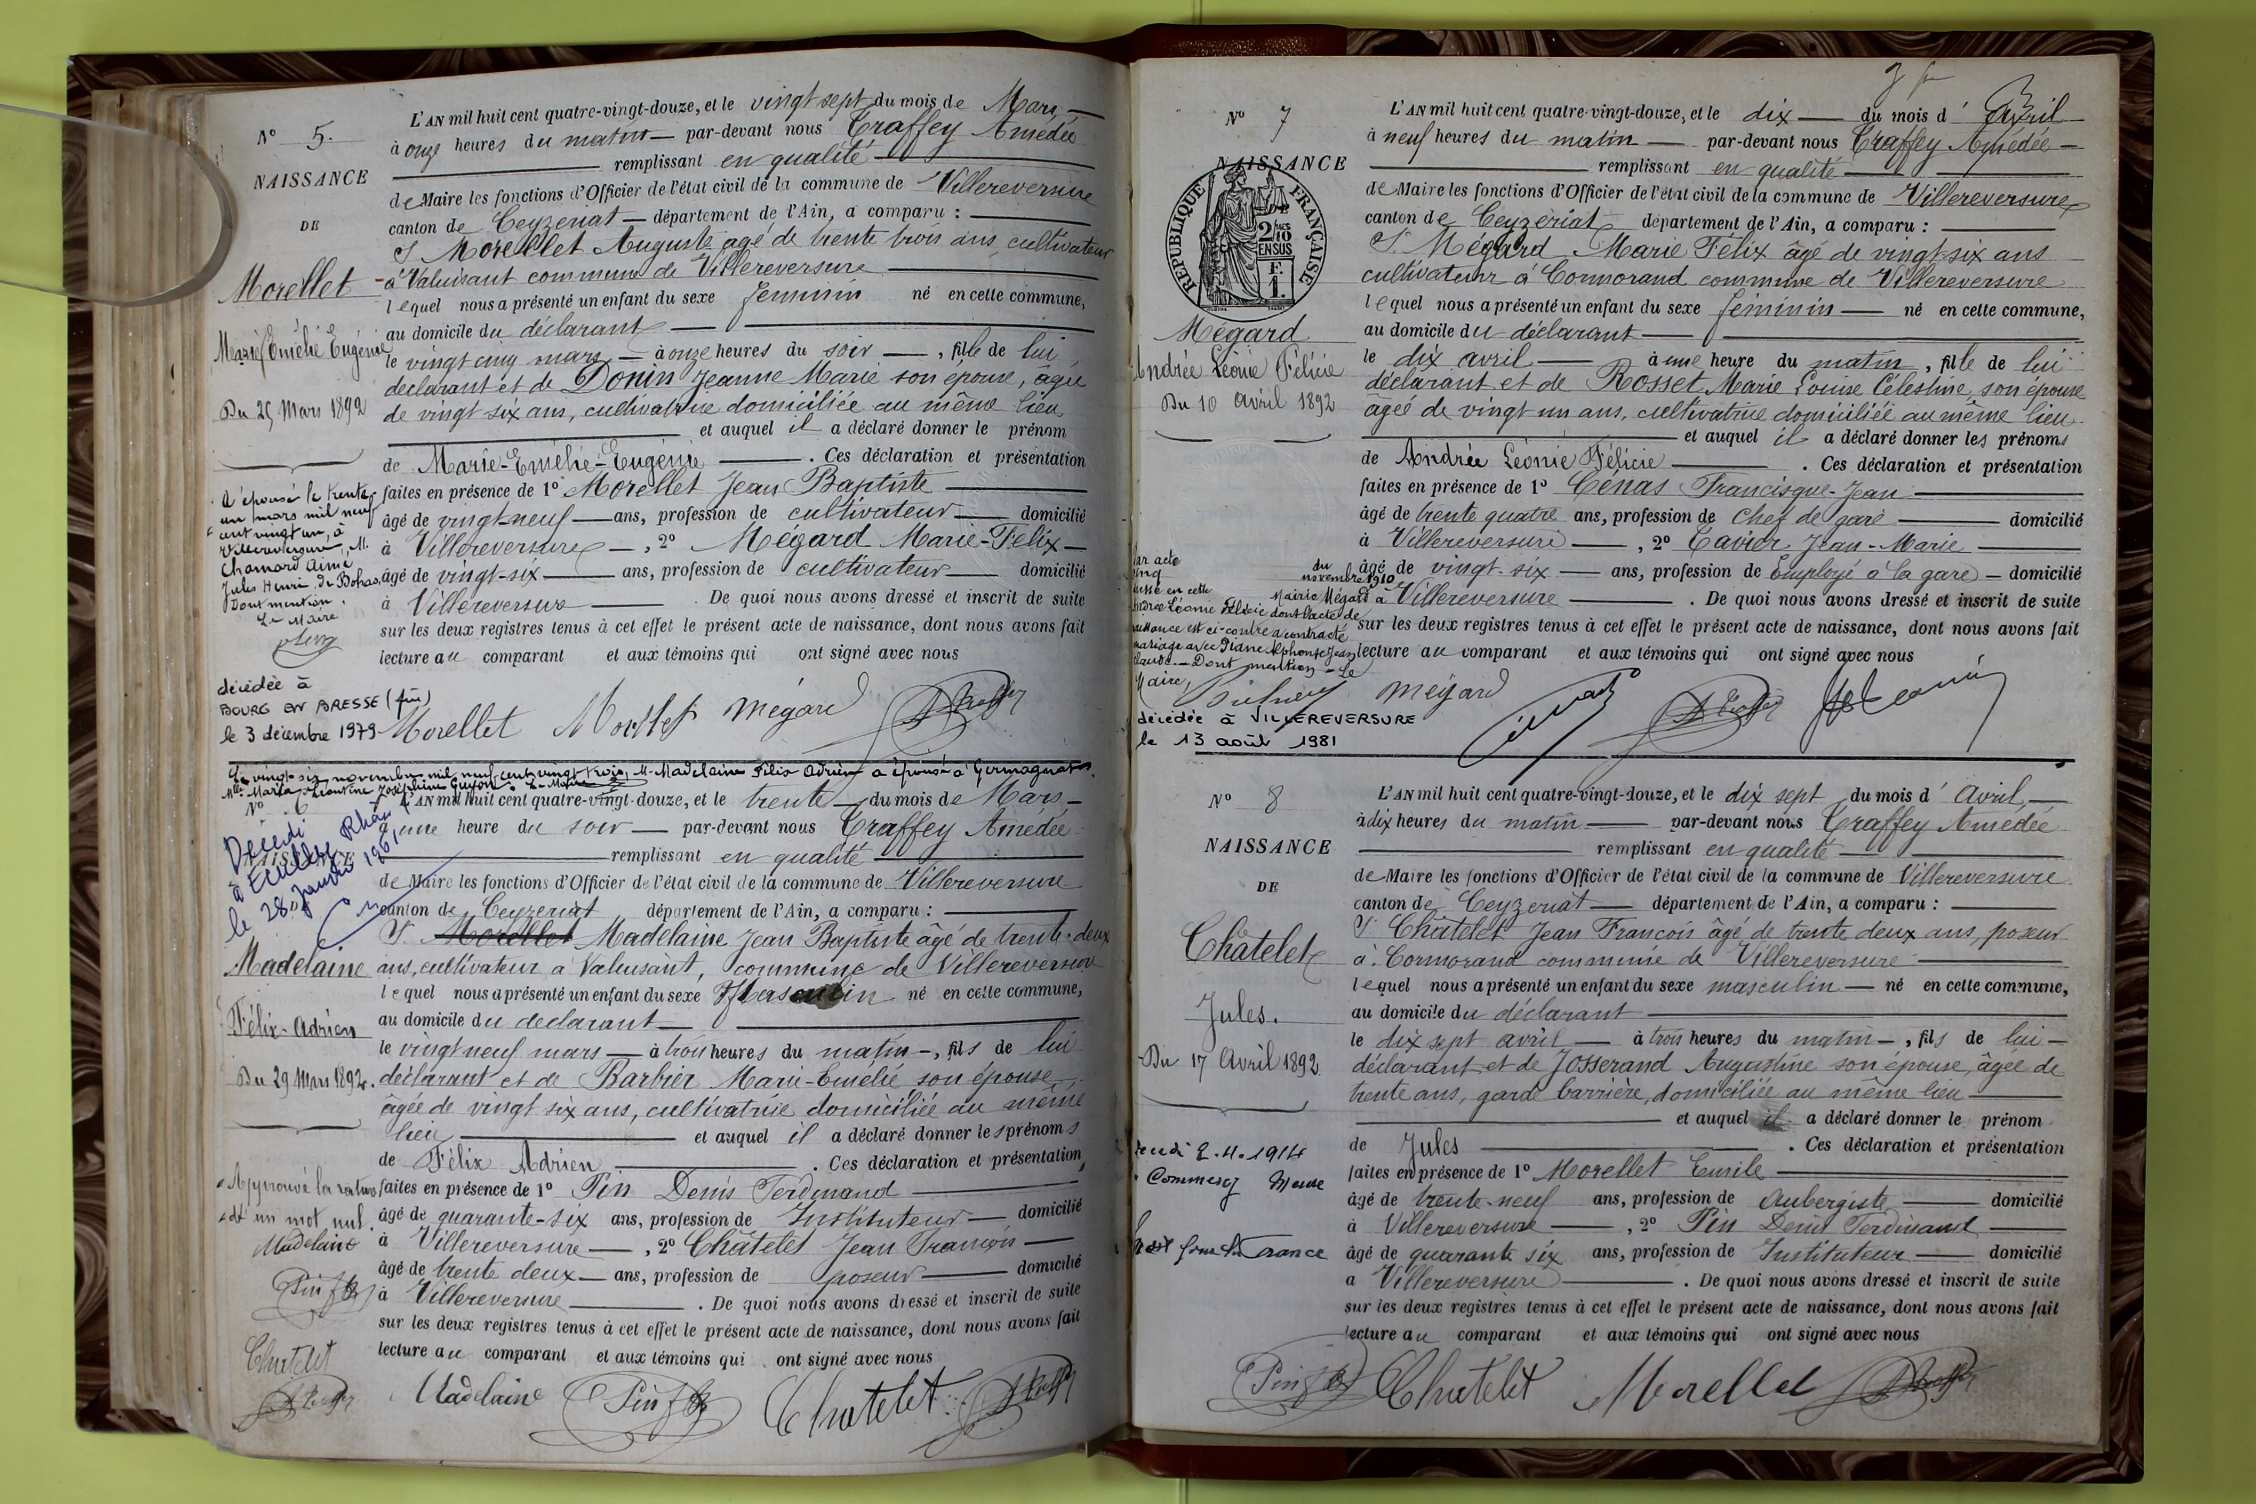 N° 5.
NAISSANCE
DE
Morellet
Marie Emélie Eugénie
Du 25 Mars 1892
A épousé le trente
un mars mil neuf
cent vingt un, à
Villereversure, M.
Chanard Aimé
Jules Henri de Bohas,
Dont mention.
Le Maire
décédée à
BOURG EN BRESSE (Ain)
le 3 décembre 1979
L'AN mil huit cent quatre-vingt-douze, et le vingt sept du mois de Mars
à onze heures du matin par-devant nous Traffey Amédée
remplissant en qualité
de Maire les fonctions d'Officier de l'état civil de la commune de Villereversure
canton de Ceyzeriat département de l'Ain, a comparu :
S. Morellet Auguste âgé de trente trois ans, cultivateur
à Valuisant commune de Villereversure
lequel nous a présenté un enfant du sexe féminin né en cette commune,
au domicile du déclarant
le vingt cinq mars à onze heures du soir, fille de lui
déclarant et de Donin Jeanne Marie son épouse, âgée
de vingt six ans, cultivatrice domiciliée au même lieu
et auquel il a déclaré donner le prénom
de Marie-Emélie-Eugénie. Ces déclaration et présentation
faites en présence de 1° Morellet Jean Baptiste
âgé de vingt-neuf ans, profession de cultivateur domicilié
à Villereversure, 2° Mégard Marie-Félix
âgé de vingt-six ans, profession de cultivateur domicilié
à Villereversure. De quoi nous avons dressé et inscrit de suite
sur les deux registres tenus à cet effet le présent acte de naissance, dont nous avons fait
lecture au comparant et aux témoins qui ont signé avec nous
Morellet Morellet Mégard
Le vingt-six novembre mil neuf cent vingt trois, M. Madelaine Félix Adrien a épousé à Germagnat
Mlle Maria Léontine Joséphine Guyon. Le Maire
N° 6
NAISSANCE
DE
Décédé
à Ecully Rhône
le 28 janvier 1961
Madelaine
Félix-Adrien
Du 29 Mars 1892.
Approuvé la rature
d'un mot nul.
Madelaine
Pin
Chatelet
L'AN mil huit cent quatre-vingt-douze, et le trente du mois de Mars
à une heure du soir par-devant nous Traffey Amédée
remplissant en qualité
de Maire les fonctions d'Officier de l'état civil de la commune de Villereversure
canton de Ceyzeriat département de l'Ain, a comparu :
S. Morellet Madelaine Jean Baptiste âgé de trente-deux
ans, cultivateur à Valuisant, commune de Villereversure
lequel nous a présenté un enfant du sexe Masculin né en cette commune,
au domicile du déclarant
le vingt neuf mars à trois heures du matin, fils de lui
déclarant et de Barbier Marie-Emélie son épouse
âgée de vingt six ans, cultivatrice domiciliée au même
lieu et auquel il a déclaré donner les prénoms
de Félix Adrien. Ces déclaration et présentation
faites en présence de 1° Pin Denis Ferdinand
âgé de quarante-six ans, profession de Instituteur domicilié
à Villereversure, 2° Châtelet Jean François
âgé de trente deux ans, profession de poseur domicilié
à Villereversure. De quoi nous avons dressé et inscrit de suite
sur les deux registres tenus à cet effet le présent acte de naissance, dont nous avons fait
lecture au comparant et aux témoins qui ont signé avec nous
Madelaine Pin Chatelet
N° 7
NAISSANCE
RÉPUBLIQUE FRANÇAISE
2/10
EN SUS
F.
1.
Mégard
Andrée Léonie Félicie
Du 10 Avril 1892
novembre 1910
en cette Mairie Mégard
Andrée Léonie Félicie dont l'acte de
naissance est ci-contre a contracté
mariage avec Alphonse Jean
Claude. Dont mention. Le
Maire,
décédée à VILLEREVERSURE
le 13 août 1981
L'AN mil huit cent quatre-vingt-douze, et le dix du mois d'Avril
à neuf heures du matin par-devant nous Traffey Amédée
remplissant en qualité
de Maire les fonctions d'Officier de l'état civil de la commune de Villereversure
canton de Ceyzeriat département de l'Ain, a comparu :
S. Mégard Marie Félix âgé de vingt-six ans
cultivateur à Cormorand commune de Villereversure
lequel nous a présenté un enfant du sexe féminin né en cette commune,
au domicile du déclarant
le dix avril à une heure du matin, fille de lui
déclarant et de Rosset Marie Louise Célestine, son épouse
âgée de vingt un ans, cultivatrice domiciliée au même lieu
et auquel il a déclaré donner les prénoms
de Andrée Léonie Félicie. Ces déclaration et présentation
faites en présence de 1° Cénas Francisque-Jean
âgé de trente quatre ans, profession de Chef de gare domicilié
à Villereversure, 2° Tavier Jean-Marie
âgé de vingt-six ans, profession de Employé à la gare domicilié
à Villereversure. De quoi nous avons dressé et inscrit de suite
sur les deux registres tenus à cet effet le présent acte de naissance, dont nous avons fait
lecture au comparant et aux témoins qui ont signé avec nous
Mégard
N° 8
NAISSANCE
DE
Châtelet
Jules.
Du 17 Avril 1892
2.4.1914
Commercy Meuse
France
L'AN mil huit cent quatre-vingt-douze, et le dix sept du mois d'Avril
à dix heures du matin par-devant nous Traffey Amédée
remplissant en qualité
de Maire les fonctions d'Officier de l'état civil de la commune de Villereversure
canton de Ceyzeriat département de l'Ain, a comparu :
S. Châtelet Jean François âgé de trente deux ans, poseur
à Cormorand commune de Villereversure
lequel nous a présenté un enfant du sexe masculin né en cette commune,
au domicile du déclarant
le dix sept avril à trois heures du matin, fils de lui
déclarant et de Josserand Augustine son épouse, âgée de
trente ans, garde barrière, domiciliée au même lieu
et auquel il a déclaré donner le prénom
de Jules. Ces déclaration et présentation
faites en présence de 1° Morellet Emile
âgé de trente-neuf ans, profession de Aubergiste domicilié
à Villereversure, 2° Pin Denis Ferdinand
âgé de quarante six ans, profession de Instituteur domicilié
à Villereversure. De quoi nous avons dressé et inscrit de suite
sur les deux registres tenus à cet effet le présent acte de naissance, dont nous avons fait
lecture au comparant et aux témoins qui ont signé avec nous
Pin Chatelet Morellet